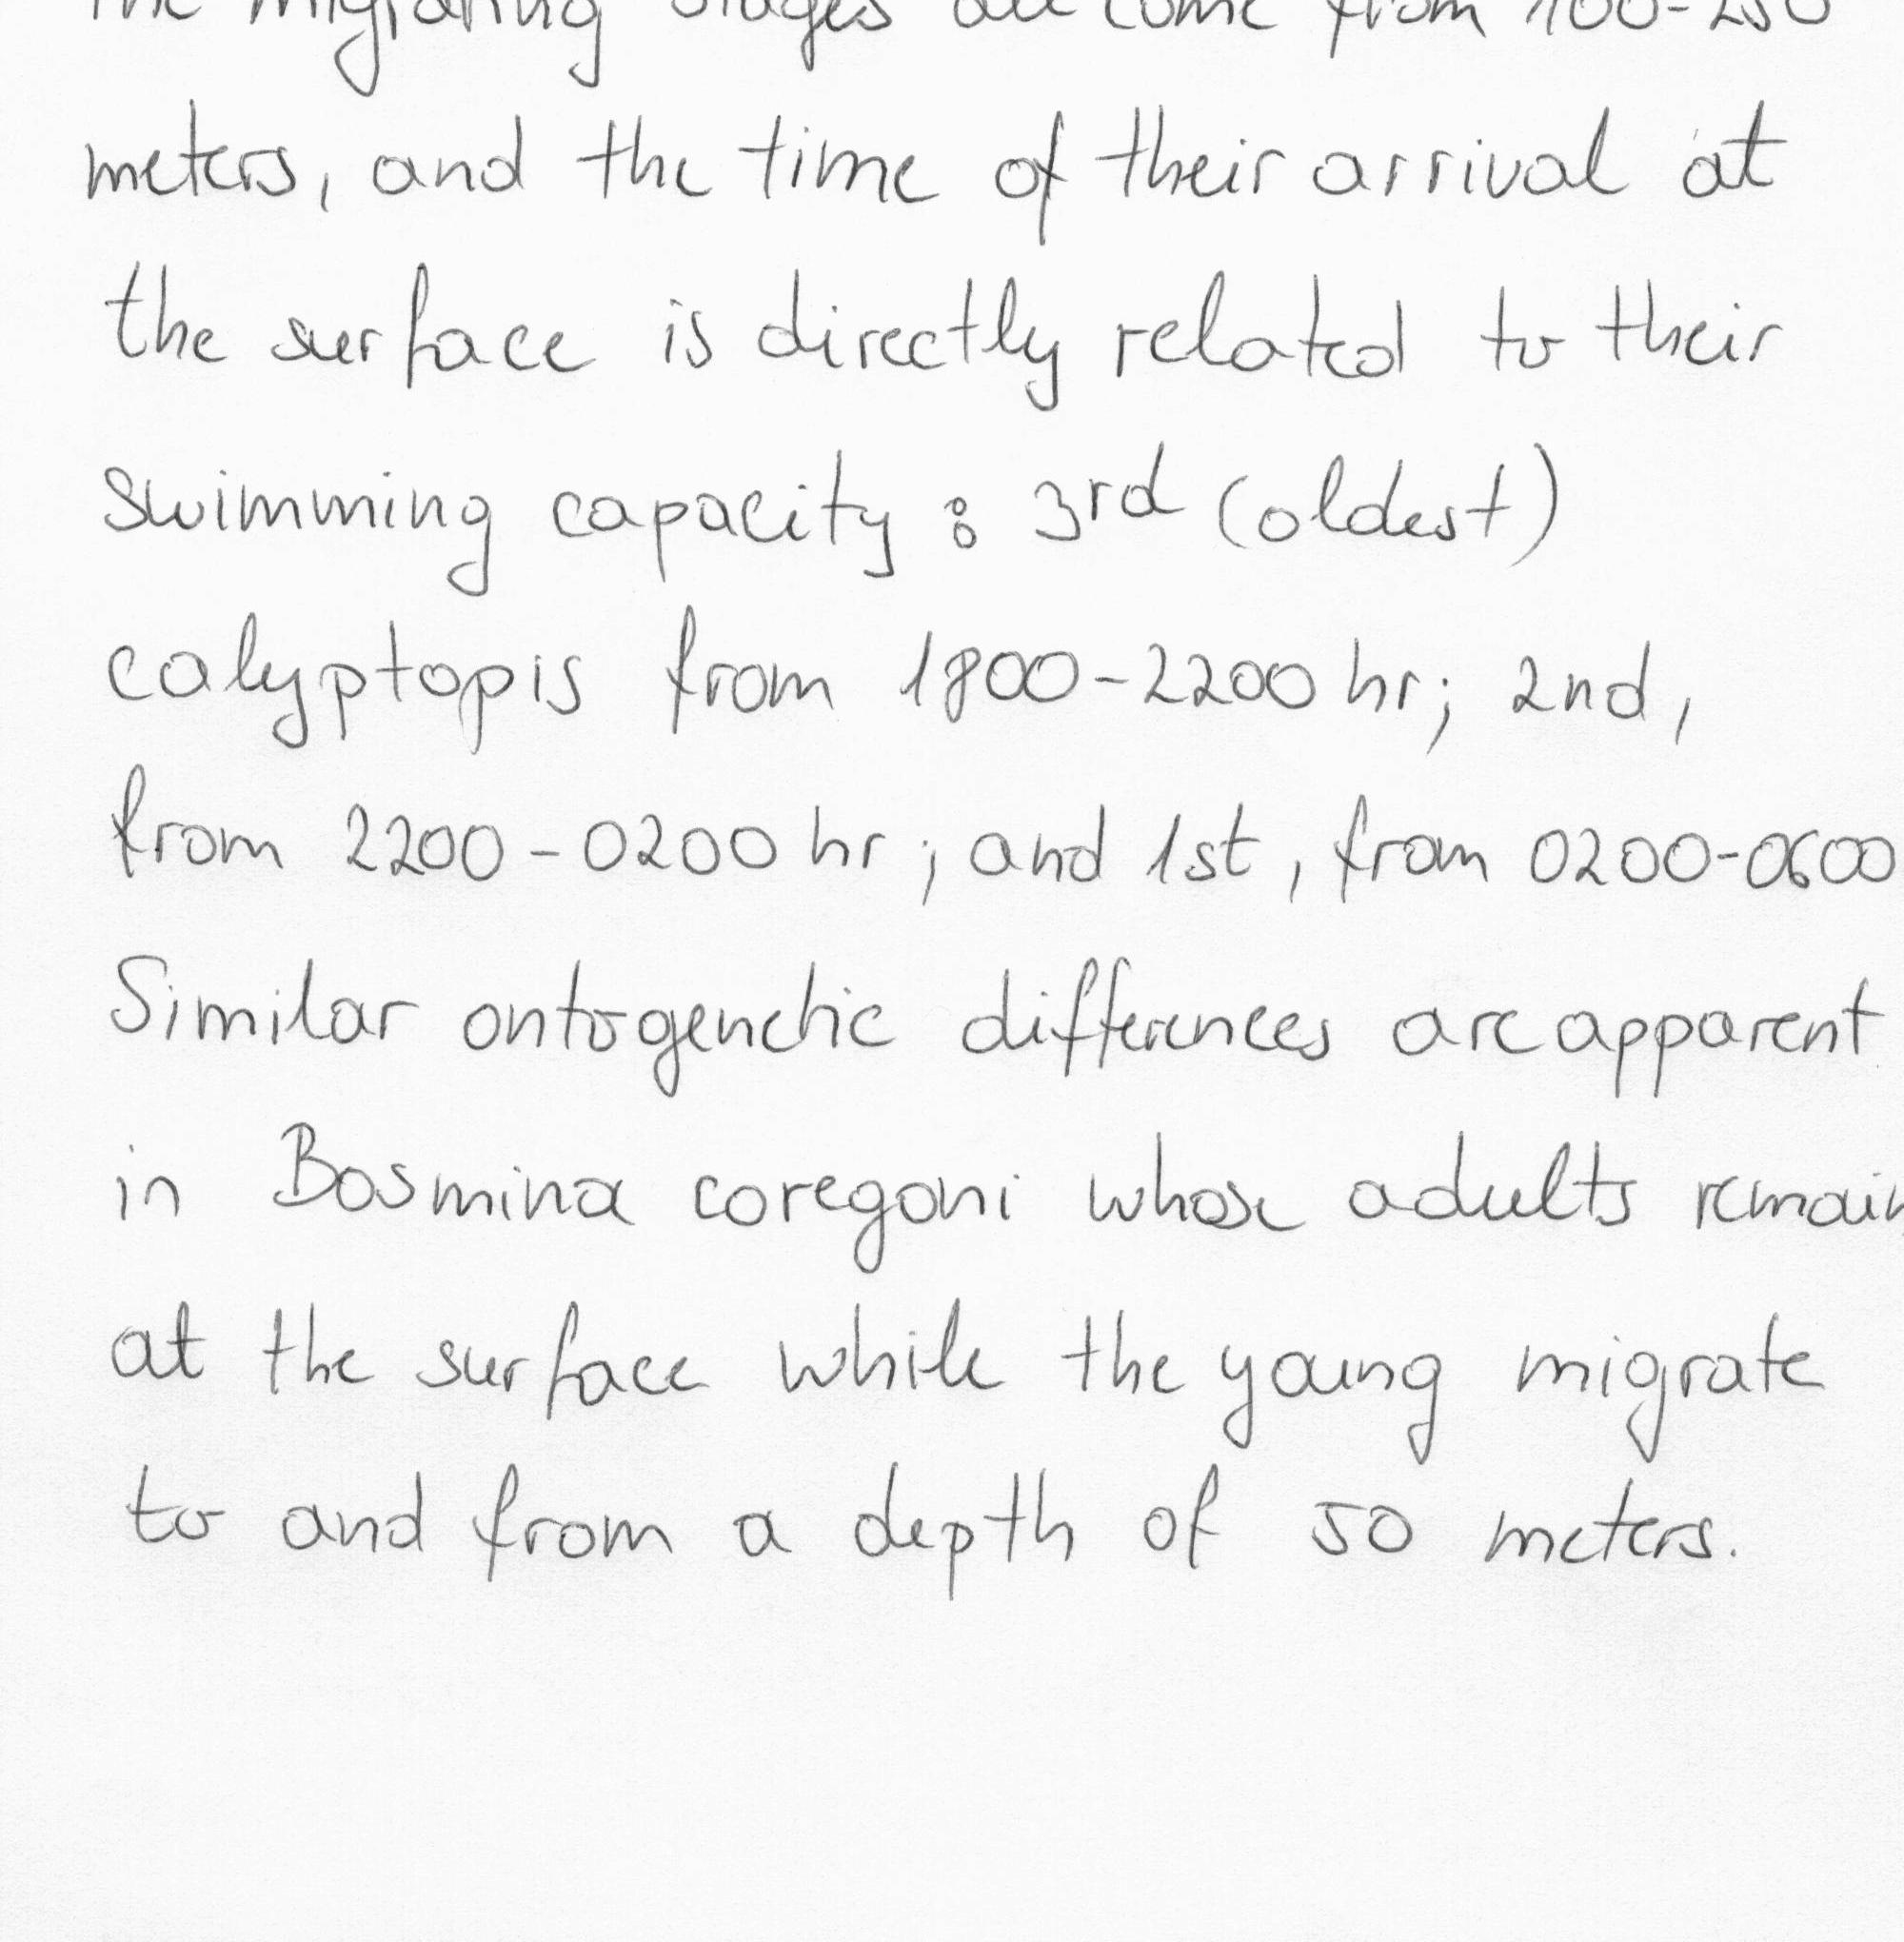 the migrating stages all come from 100-250
meters, and the time of their arrival at
the surface is directly related to their
swimming capacity : 3rd (oldest)
calyptopis from 1800-2200 hr; 2nd,
from 2200-0200 hr; and 1st, from 0200-0600
Similar ontogenetic differences are apparent
in Bosmina coregoni whose adults remain
at the surface while the young migrate
to and from a depth of 50 meters.